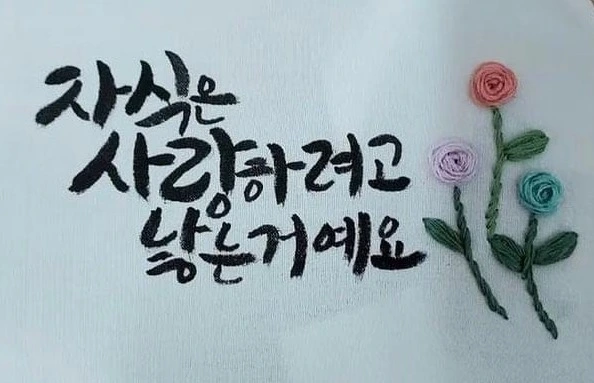 자식은
사랑하려고
낳는거예요